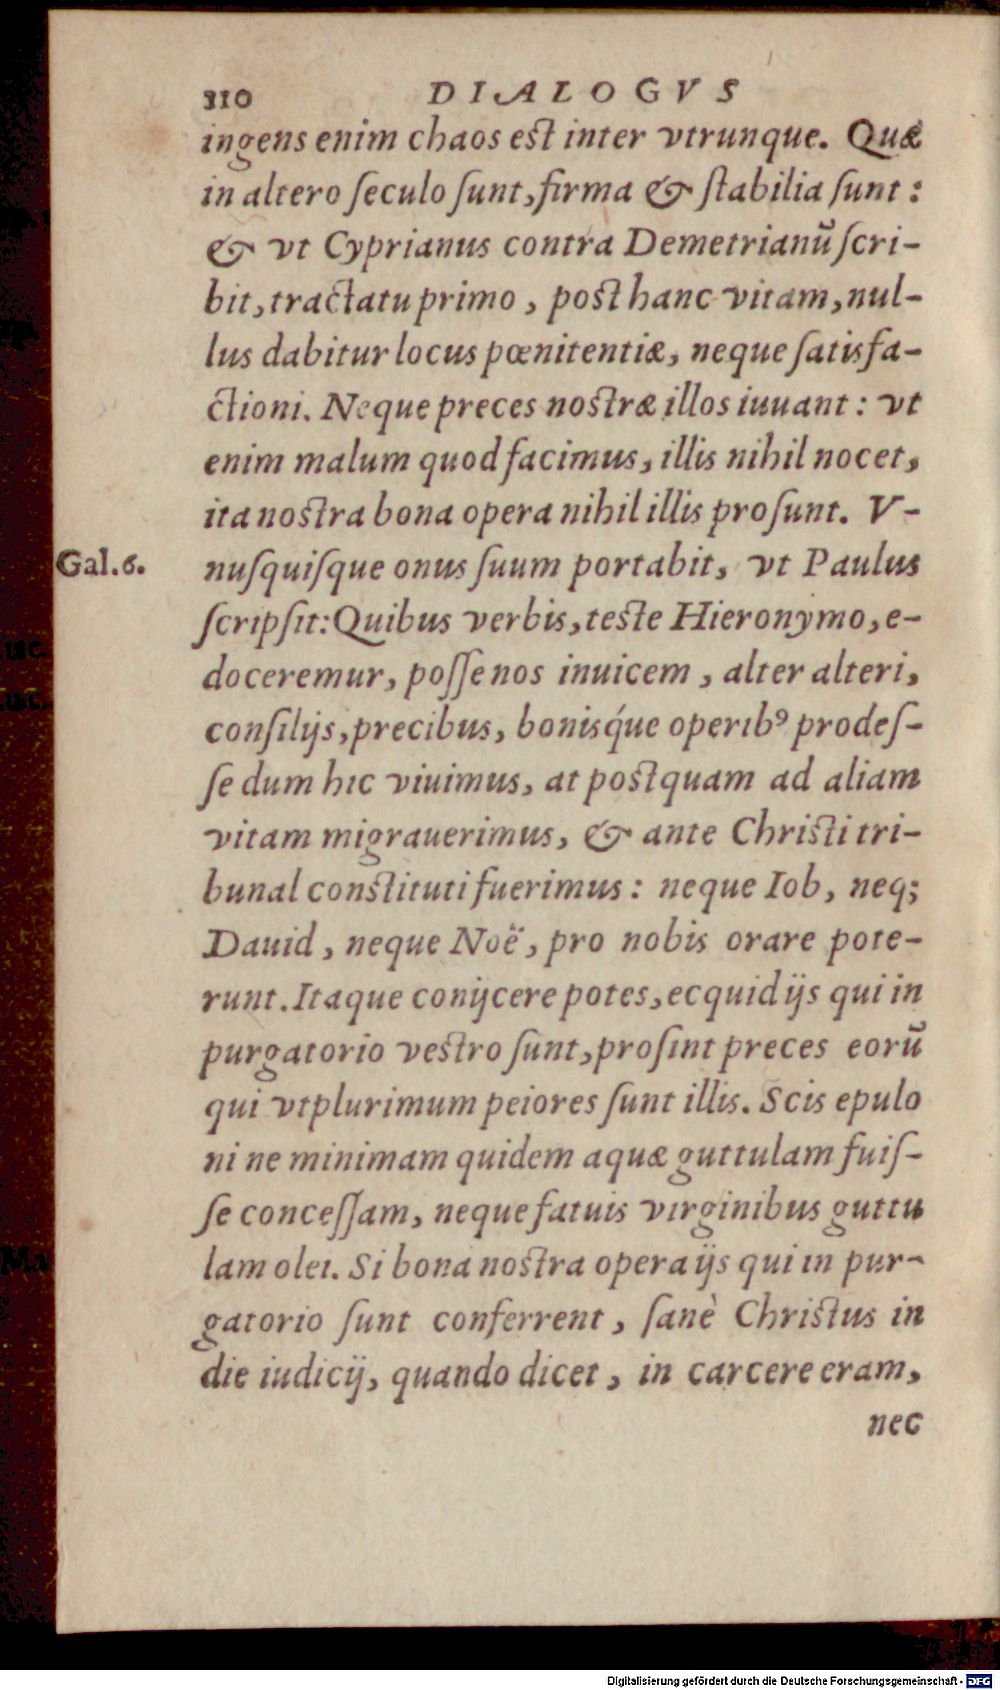 310 DIALOGVS
ingens enim chaos est inter vtrunque. Quæ
in altero ſeculo ſunt, firma & ſtabilia ſunt:
& vt Cyprianus contra Demetrianũ ſcri-
bit, tractatu primo, post hanc vitam, nul-
lus dabitur locus pœnitentiæ, neque ſatisfa-
ctioni. Neque preces nostræ illos iuuant: vt
enim malum quod facimus, illis nihil nocet,
ita nostra bona opera nihil illis proſunt. V-
Gal.6. nuſquiſque onus ſuum portabit, vt Paulus
ſcripſit: Quibus verbis, teste Hieronymo, e-
doceremur, poſſe nos inuicem, alter alteri,
conſilijs, precibus, bonisq́ue operibꝰ prodeſ-
ſe dum hic viuimus, at postquam ad aliam
vitam migrauerimus, & ante Christi tri-
bunal constituti fuerimus: neque Iob, neq;
Dauid, neque Noë, pro nobis orare pote-
runt. Itaque conijcere potes, ecquid ijs qui in
purgatorio vestro ſunt, proſint preces eorũ
qui vtplurimum peiores ſunt illis. Scis epulo
ni ne minimam quidem aquæ guttulam fuiſ-
ſe conceſſam, neque fatuis virginibus guttu
lam olei. Si bona nostra opera ijs qui in pur-
gatorio ſunt conferrent, ſanè Christus in
die iudicij, quando dicet, in carcere eram,
nec
Digitalisierung gefördert durch die Deutsche Forschungsgemeinschaft - DFG